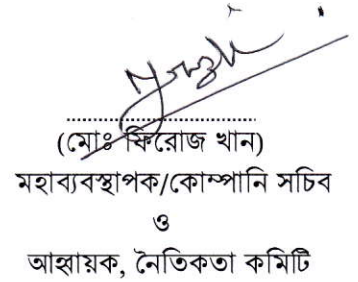 (মোঃ ফিরোজ খান)
মহাব্যবস্থাপক/কোম্পানি সচিব
ও
আহ্বায়ক, নৈতিকতা কমিটি